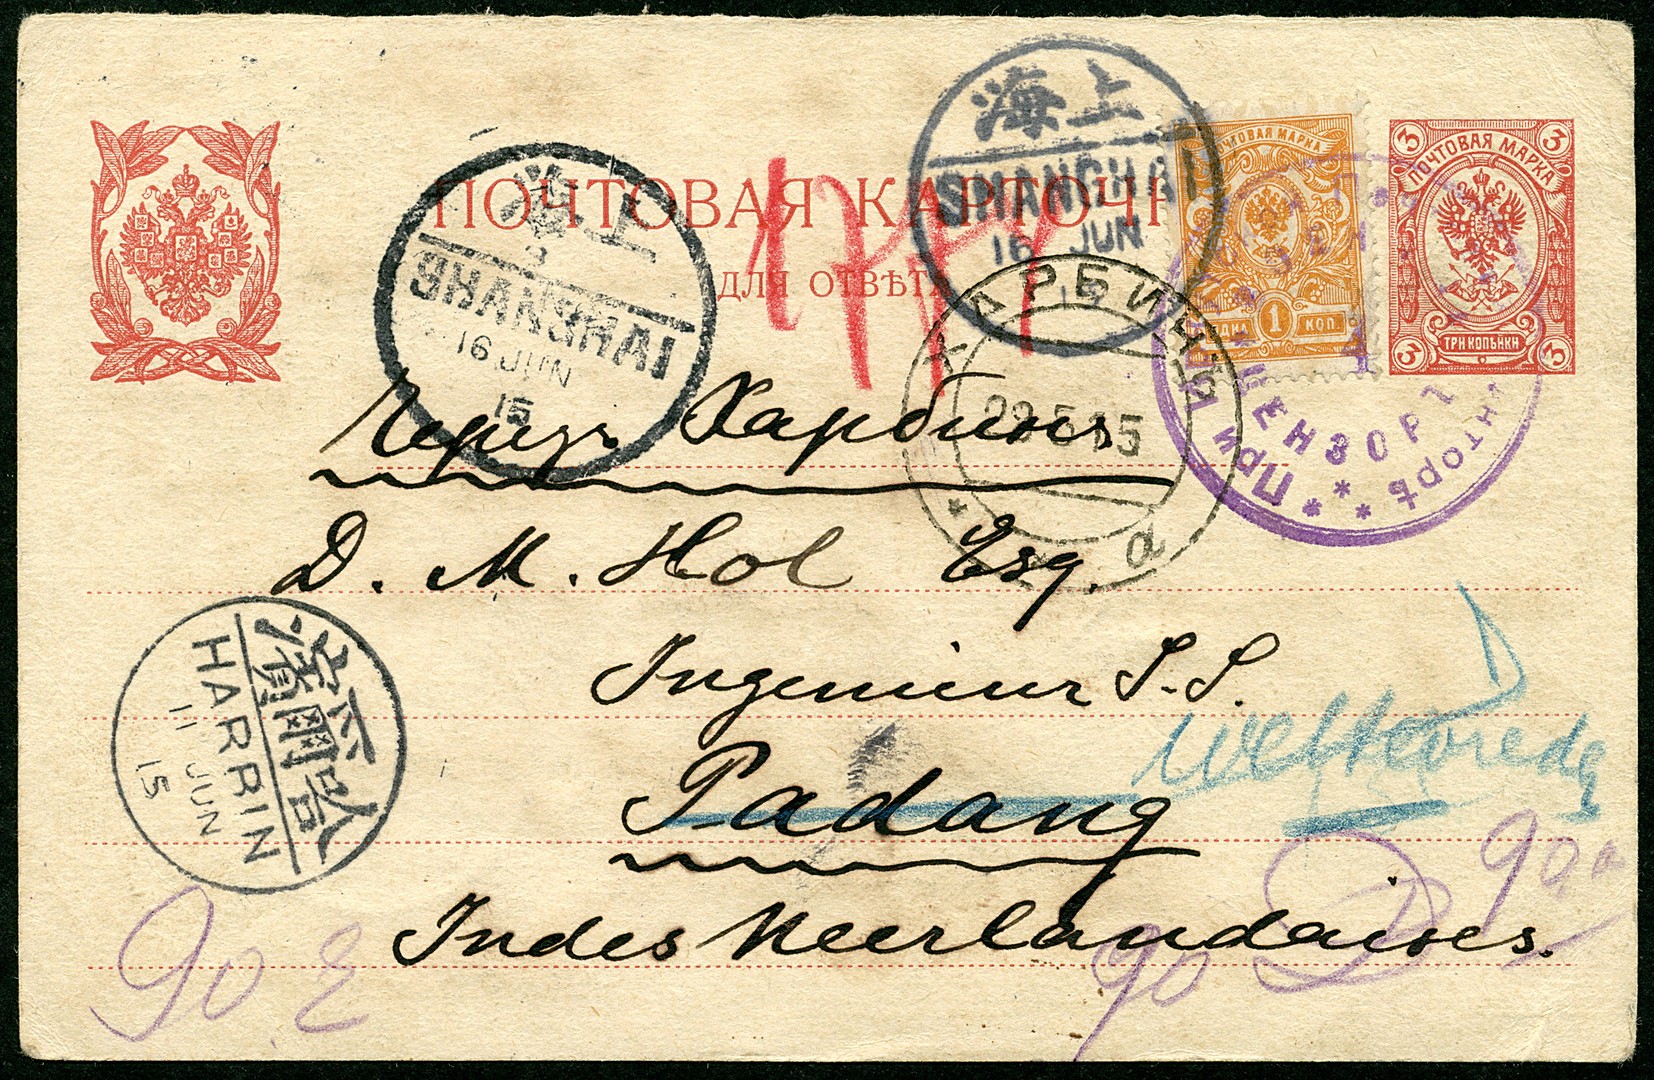 ПОЧТОВАЯ КАРТОЧК
ДЛЯ ОТВѢТА
海上
SHANGHAI
16 JUN
15
海上
SHANGHAI
16 JUN
15
ПОЧТОВАЯ МАРКА
1 КОП.
3 3
ПОЧТОВАЯ МАРКА
ТРИ КОПѢЙКИ
3 3
ХАРБИНЪ
28.5.15
а
ЦЕНЗОРЪ
ПРИ
Черезъ Харбинъ
D. M. Hol Esq.
Ingenieur S.S.
Weltevreden
Padang
Indes Neerlandaises.
濱爾哈
HARBIN
11 JUN
15
90
90
90